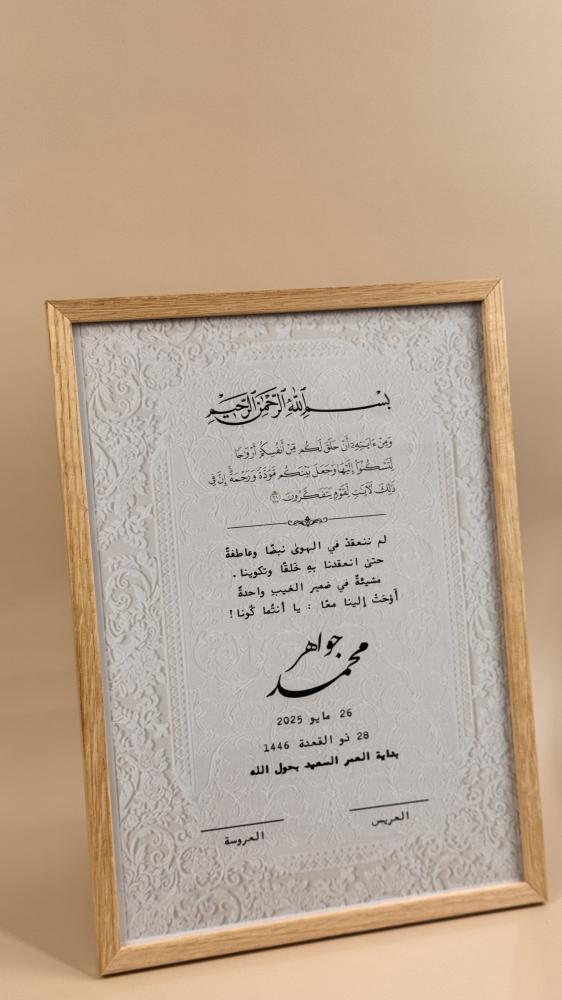 بسم الله الرحمن الرحيم
وَمِنْ ءَايَٰتِهِۦٓ أَنْ خَلَقَ لَكُم مِّنْ أَنفُسِكُمْ أَزْوَٰجًا
لِّتَسْكُنُوٓا۟ إِلَيْهَا وَجَعَلَ بَيْنَكُم مَّوَدَّةً وَرَحْمَةً إِنَّ فِى
ذَٰلِكَ لَءَايَٰتٍ لِّقَوْمٍ يَتَفَكَّرُونَ ٢١
لم ننعقدْ في الهوىٰ نبضًا وعاطفةً
حتىٰ انعقدنا بهِ خَلقًا وتكوينا .
مشيئةٌ في ضمير الغيبِ واحدةٌ
أوْحَتْ إلينا معًا : يا أنتُما كُونا !
جواهر
محمد
26 مايو 2025
28 ذو القعدة 1446
بداية العمر السعيد بحول الله
العريس
العروسة